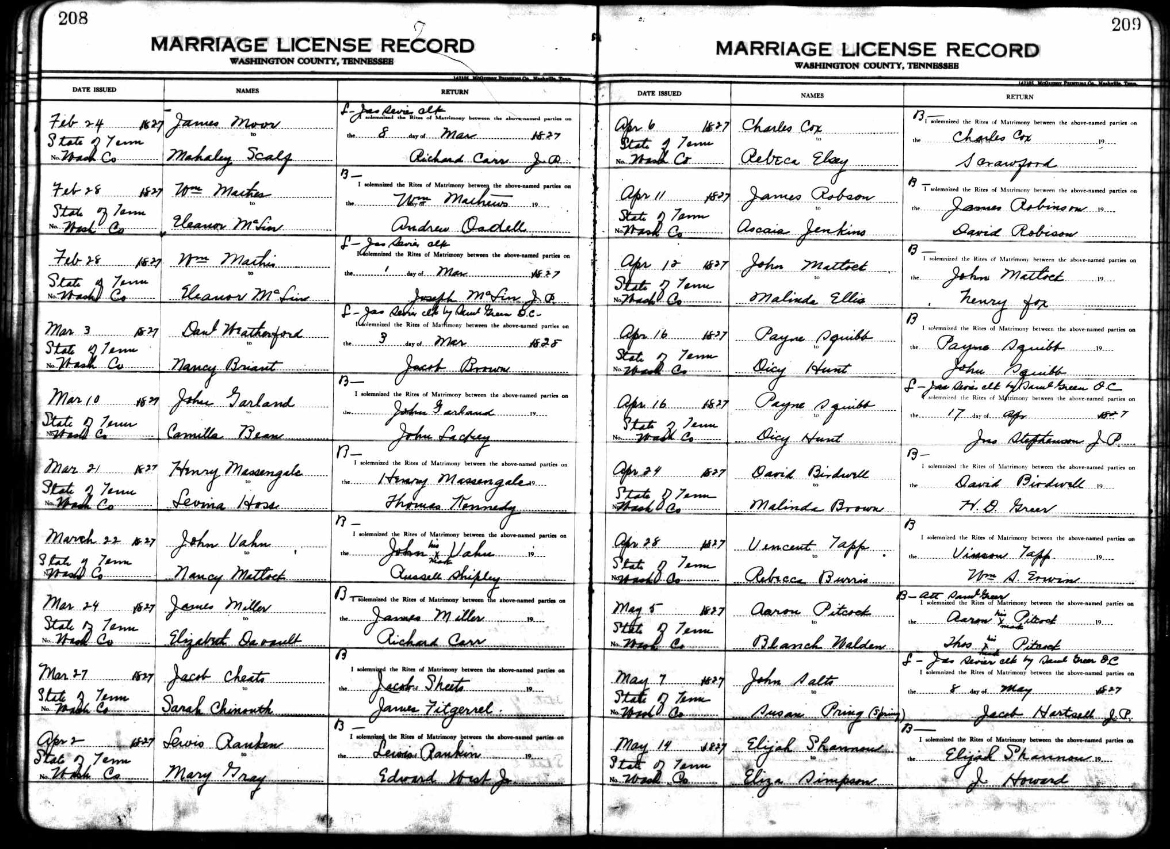 208
MARRIAGE LICENSE RECORD
WASHINGTON COUNTY, TENNESSEE
DATE ISSUED NAMES RETURN
Feb 24 1827 James Moor L - Jas Sevier clk
I solemnized the Rites of Matrimony between the above-named parties on
State of Tenn to the 8 day of Mar 1827
No. Wash Co Mahaley Scalf Richard Carr J.P.
Feb 28 1827 Wm Mathes B -
I solemnized the Rites of Matrimony between the above-named parties on
State of Tenn to the Wm Mathews 19
No. Wash Co Eleanor McLin Andrew Oadell
Feb 28 1827 Wm Mathis L - Jas Sevier clk
I solemnized the Rites of Matrimony between the above-named parties on
State of Tenn to the 1 day of Mar 1827
No. Wash Co Eleanor McLin Joseph McLin J.P.
Mar 3 1827 Danl Weatherford L - Jas Sevier clk by Saml Greer D.C.
I solemnized the Rites of Matrimony between the above-named parties on
State of Tenn to the 3 day of Mar 1828
No. Wash Co Nancy Briant Jacob Brown
Mar 10 1827 John Garland B -
I solemnized the Rites of Matrimony between the above-named parties on
State of Tenn to the John Garland 19
No. Wash Co Camilla Bean John Lackey
Mar 21 1827 Henry Massengale B -
I solemnized the Rites of Matrimony between the above-named parties on
State of Tenn to the Henry Massengale
No. Wash Co Levina Hoss Thomas Kennedy
March 22 1827 John Vahn B -
I solemnized the Rites of Matrimony between the above-named parties on
State of Tenn to the John his x mark Vahn 19
No. Wash Co Nancy Matlock Russell Shipley
Mar 24 1827 James Miller B -
I solemnized the Rites of Matrimony between the above-named parties on
State of Tenn to the James Miller 19
No. Wash Co Elizabeth Devault Richard Carr
Mar 27 1827 Jacob Cheats B
I solemnized the Rites of Matrimony between the above-named parties on
State of Tenn to the Jacob Sheets 19
No. Wash Co Sarah Chinouth James Fitgerrel
Apr 2 1827 Lewis Ranken B -
I solemnized the Rites of Matrimony between the above-named parties on
State of Tenn to the Lewis Rankin 19
No. Wash Co Mary Gray Edward West Jr
209
MARRIAGE LICENSE RECORD
WASHINGTON COUNTY, TENNESSEE
DATE ISSUED NAMES RETURN
Apr 6 1827 Charles Cox B -
I solemnized the Rites of Matrimony between the above-named parties on
State of Tenn to the Charles Cox 19
No. Wash Co Rebeca Ebay S Crawford
Apr 11 1827 James Robson B -
I solemnized the Rites of Matrimony between the above-named parties on
State of Tenn to the James Robinson 19
No. Wash Co Ascaia Jenkins David Robison
Apr 12 1827 John Matlock B -
I solemnized the Rites of Matrimony between the above-named parties on
State of Tenn to the John Matlock 19
No. Wash Co Malinda Ellis Henry Fox
Apr 16 1827 Payne Squibb B
I solemnized the Rites of Matrimony between the above-named parties on
State of Tenn to the Payne Squibb 19
No. Wash Co Dicy Hunt John Squibb
Apr 16 1827 Payne Squibb L - Jas Sevier clk by Saml Greer D C
I solemnized the Rites of Matrimony between the above-named parties on
State of Tenn to the 17 day of Apr 1827
No. Wash Co Dicy Hunt Jno Stephenson J.P.
Apr 24 1827 David Birdwell B -
I solemnized the Rites of Matrimony between the above-named parties on
State of Tenn to the David Birdwell 19
No. Wash Co Malinda Brown H. D. Greer
Apr 28 1827 Vincent Tapp B
I solemnized the Rites of Matrimony between the above-named parties on
State of Tenn to the Vinson Tapp 19
No. Wash Co Rebecca Burris Wm S. Erwin
May 5 1827 Aaron Pitcock B - Att Saml Greer
I solemnized the Rites of Matrimony between the above-named parties on
State of Tenn to the Aaron his x mark Pitcock
No. Wash Co Blanch Walden Thos his x mark Pitcock
May 7 1827 John Salts L - Jas Sevier clk by Saml Greer D C
I solemnized the Rites of Matrimony between the above-named parties on
State of Tenn to the 8 day of May 1827
No. Wash Co Susan Pring (Spring) Jacob Hartsell J.P.
May 14 1827 Elijah Shannon B -
I solemnized the Rites of Matrimony between the above-named parties on
State of Tenn to the Elijah Shannon 19
No. Wash Co Eliza Simpson J Howard